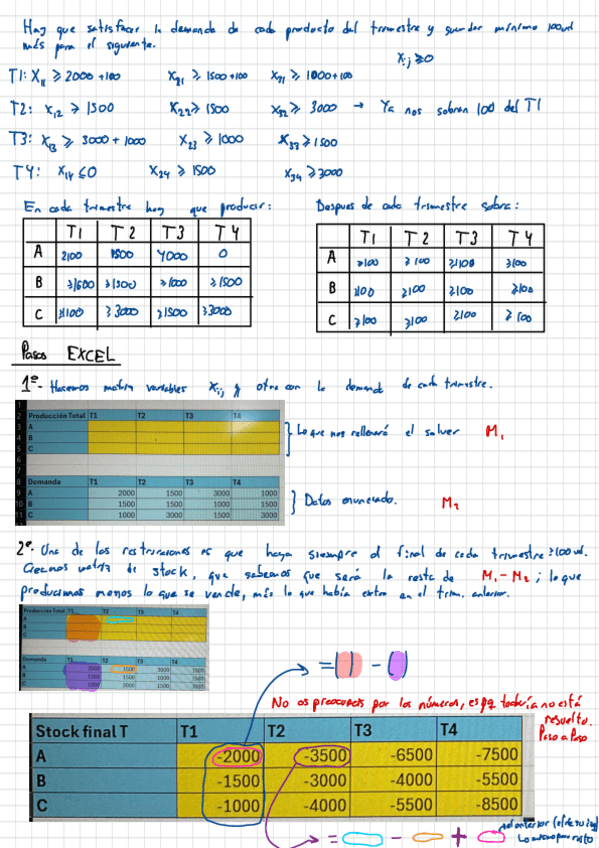 Hay que satisfacer la demanda de cada producto del trimestre y guardar mínimo 100ud
más para el siguiente.
Xij ≥ 0
T1: X11 ≥ 2000 + 100 X21 ≥ 1500 + 100 X31 ≥ 1000 + 100
T2: X12 ≥ 1500 X22 ≥ 1500 X32 ≥ 3000 → Ya nos sobran 100 del T1
T3: X13 ≥ 3000 + 1000 X23 ≥ 1000 X33 ≥ 1500
T4: X14 ≤ 0 X24 ≥ 1500 X34 ≥ 3000
En cada trimestre hay que producir:
T1 T2 T3 T4
A 2100 1500 4000 0
B ≥1600 ≥1500 ≥1000 ≥1500
C ≥1100 ≥3000 ≥1500 ≥3000
Despues de cada trimestre sobra:
T1 T2 T3 T4
A ≥100 ≥100 ≥1100 ≥100
B ≥100 ≥100 ≥100 ≥100
C ≥100 ≥100 ≥100 ≥100
Pasos EXCEL
1º.- Hacemos matriz variables Xij y otra con la demanda de cada trimestre.
Producción Total T1 T2 T3 T4
A
B
C
Lo que nos rellenará el solver M1
Demanda T1 T2 T3 T4
A 2000 1500 3000 1000
B 1500 1500 1000 1500
C 1000 3000 1500 3000
Datos enunciado. M2
2º.- Una de las restricciones es que haya siempre al final de cada trimestre ≥100 ud.
Creamos matriz de stock, que sabemos que será la resta de M1 - M2; lo que
producimos menos lo que se vende, más lo que había extra en el trim. anterior.
Producción Total T1 T2 T3 T4
A
B
C
Demanda T1 T2 T3 T4
A 2000 1500 3000 1000
B 1500 1500 1000 1500
C 1000 3000 1500 3000
= -
No os preocupeis por los números, es pq todavía no está
resuelto.
Paso a Paso
Stock final T T1 T2 T3 T4
A -2000 -3500 -6500 -7500
B -1500 -3000 -4000 -5500
C -1000 -4000 -5500 -8500
= - +